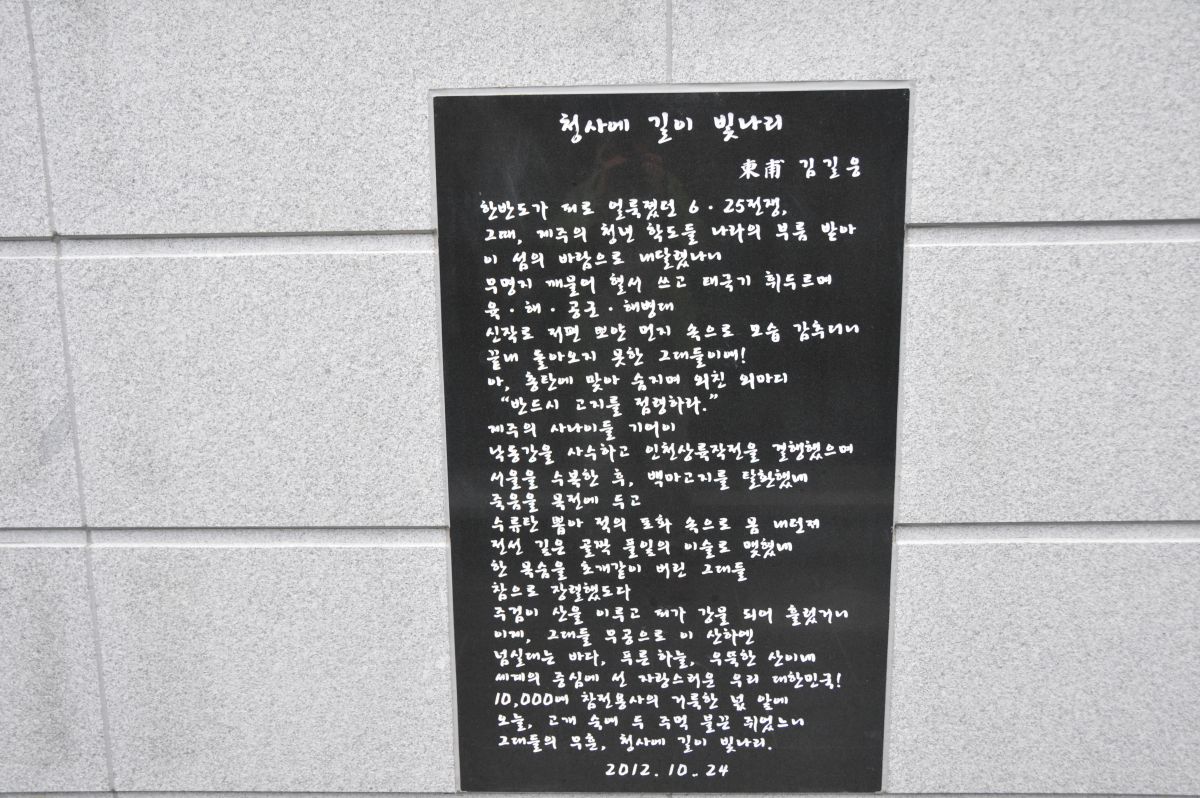 청사에 길이 빛나리
東甫 김길웅
한반도가 피로 얼룩졌던 6·25전쟁,
그때, 제주의 청년 학도들 나라의 부름 받아
이 섬의 바람으로 내달렸나니
무명지 깨물어 혈서 쓰고 태극기 휘두르며
육·해·공군·해병대
신작로 저편 뽀얀 먼지 속으로 모습 감추더니
끝내 돌아오지 못한 그대들이여!
아, 총탄에 맞아 숨지며 외친 외마디
“반드시 고지를 점령하라.”
제주의 사나이들 기어이
낙동강을 사수하고 인천상륙작전을 결행했으며
서울을 수복한 후, 백마고지를 탈환했네
죽음을 목전에 두고
수류탄 뽑아 적의 포화 속으로 몸 내던져
전선 깊은 골짝 풀잎의 이슬로 맺혔네
한 목숨을 초개같이 버린 그대들
참으로 장렬했도다
주검이 산을 이루고 피가 강을 되어 흘렀거니
이제, 그대들 무공으로 이 산하엔
넘실대는 바다, 푸른하늘, 우뚝한 산이네
세계의 중심에 선 자랑스러운 우리 대한민국!
10,000여 참전용사의 거룩한 넋 앞에
오늘, 고개 숙여 두 주먹 불끈 쥐었느니
그대들의 무훈, 청사에 길이 빛나리.
2012.10.24